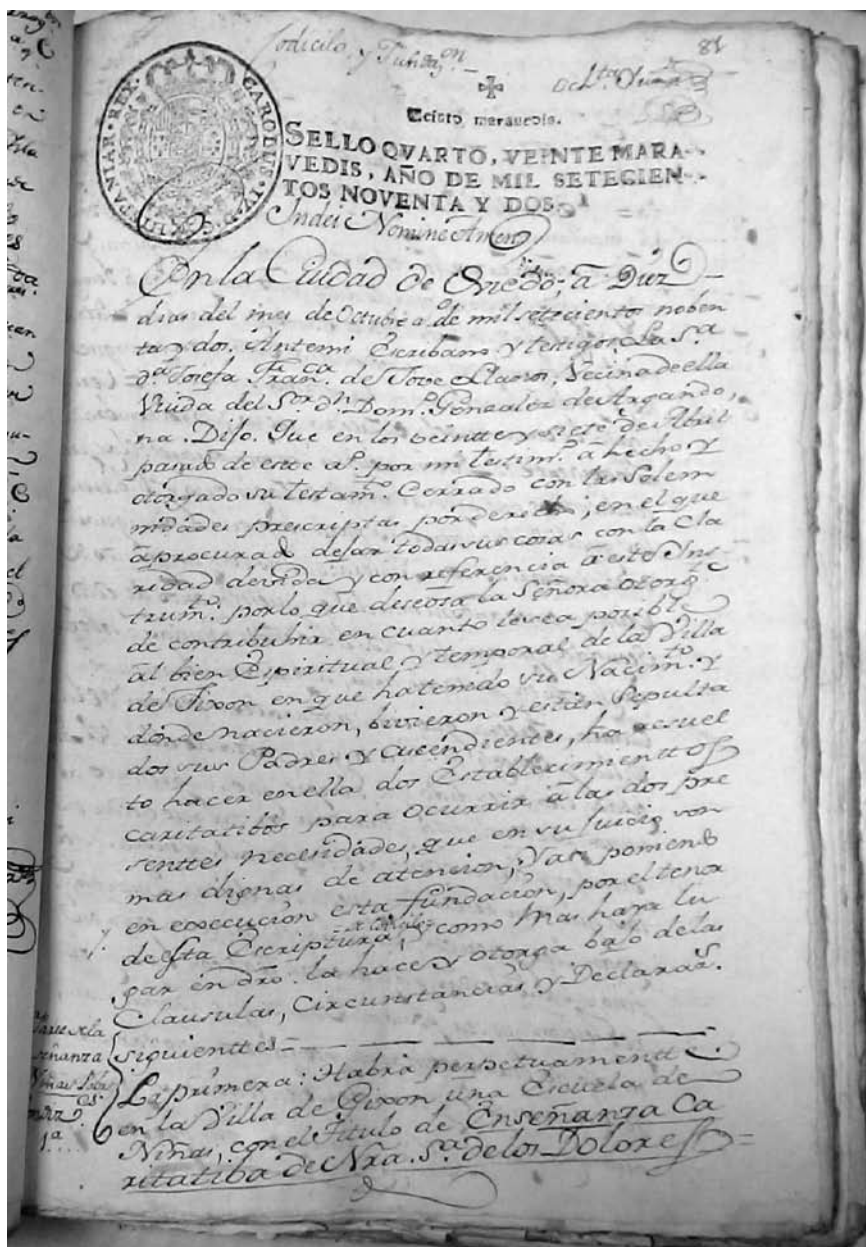 Codicilo y Fundaz.on
81
Veinte maravedis.
CAROLUS·IV·D·G·HISPANIAR·REX·
SELLO QVARTO, VEINTE MARA-
VEDIS, AÑO DE MIL SETECIEN-
TOS NOVENTA Y DOS.
Indei Nomine Amen
En la Ciudad de Oviedo, a Diez
dias del mes de Octubre a.o de mil setecientos noben
ta y dos, Antemi Escribano y testigos, La S.ra
d.a Josefa Fran.ca de Jove Llanos, Vecina de ella
Viuda del S.or d.n Dom.o Gonzalez de Argando,
na. Dijo. Que en los veintte y siete de Abril
pasado de estte a.o por mi testim.o a hecho y
otorgado su testam.to Cerrado con las solem
nidades prescriptas por derecho; en el que
a procurado dejar todas sus cosas con la Cla
ridad devida y con referencia a este Ins-
trum.to; por lo que deseosa la Señora otorg.te
de contribuhir en cuanto le sea posible
al bien Espiritual y temporal de la Villa
de Jixon en que ha tenido su Nacim.to y
donde nacieron, bivieron y están Sepulta
dos sus Padres y Ascendientes, ha resuel
to hacer en ella dos Establecimienttos
caritatibos para ocurrir a las dos pre
senttes necesidades, que en su Juicio son
mas dignas de atencion, y asi poniendo
en execucion esta fundacion, por el tenor
de esta Escriptura, o Codicilo como mas haya lu
gar en dro. la hace y otorga bajo de las
Clausulas, Circunstancias, y Declaraz.s
siguienttes
La primera: Habrá perpetuamentte
en la Villa de Gixon una Escuela de
Niñas, con el Titulo de Enseñanza Ca
ritatiba de Nra. S.ra de los Dolores
señanza
1.a